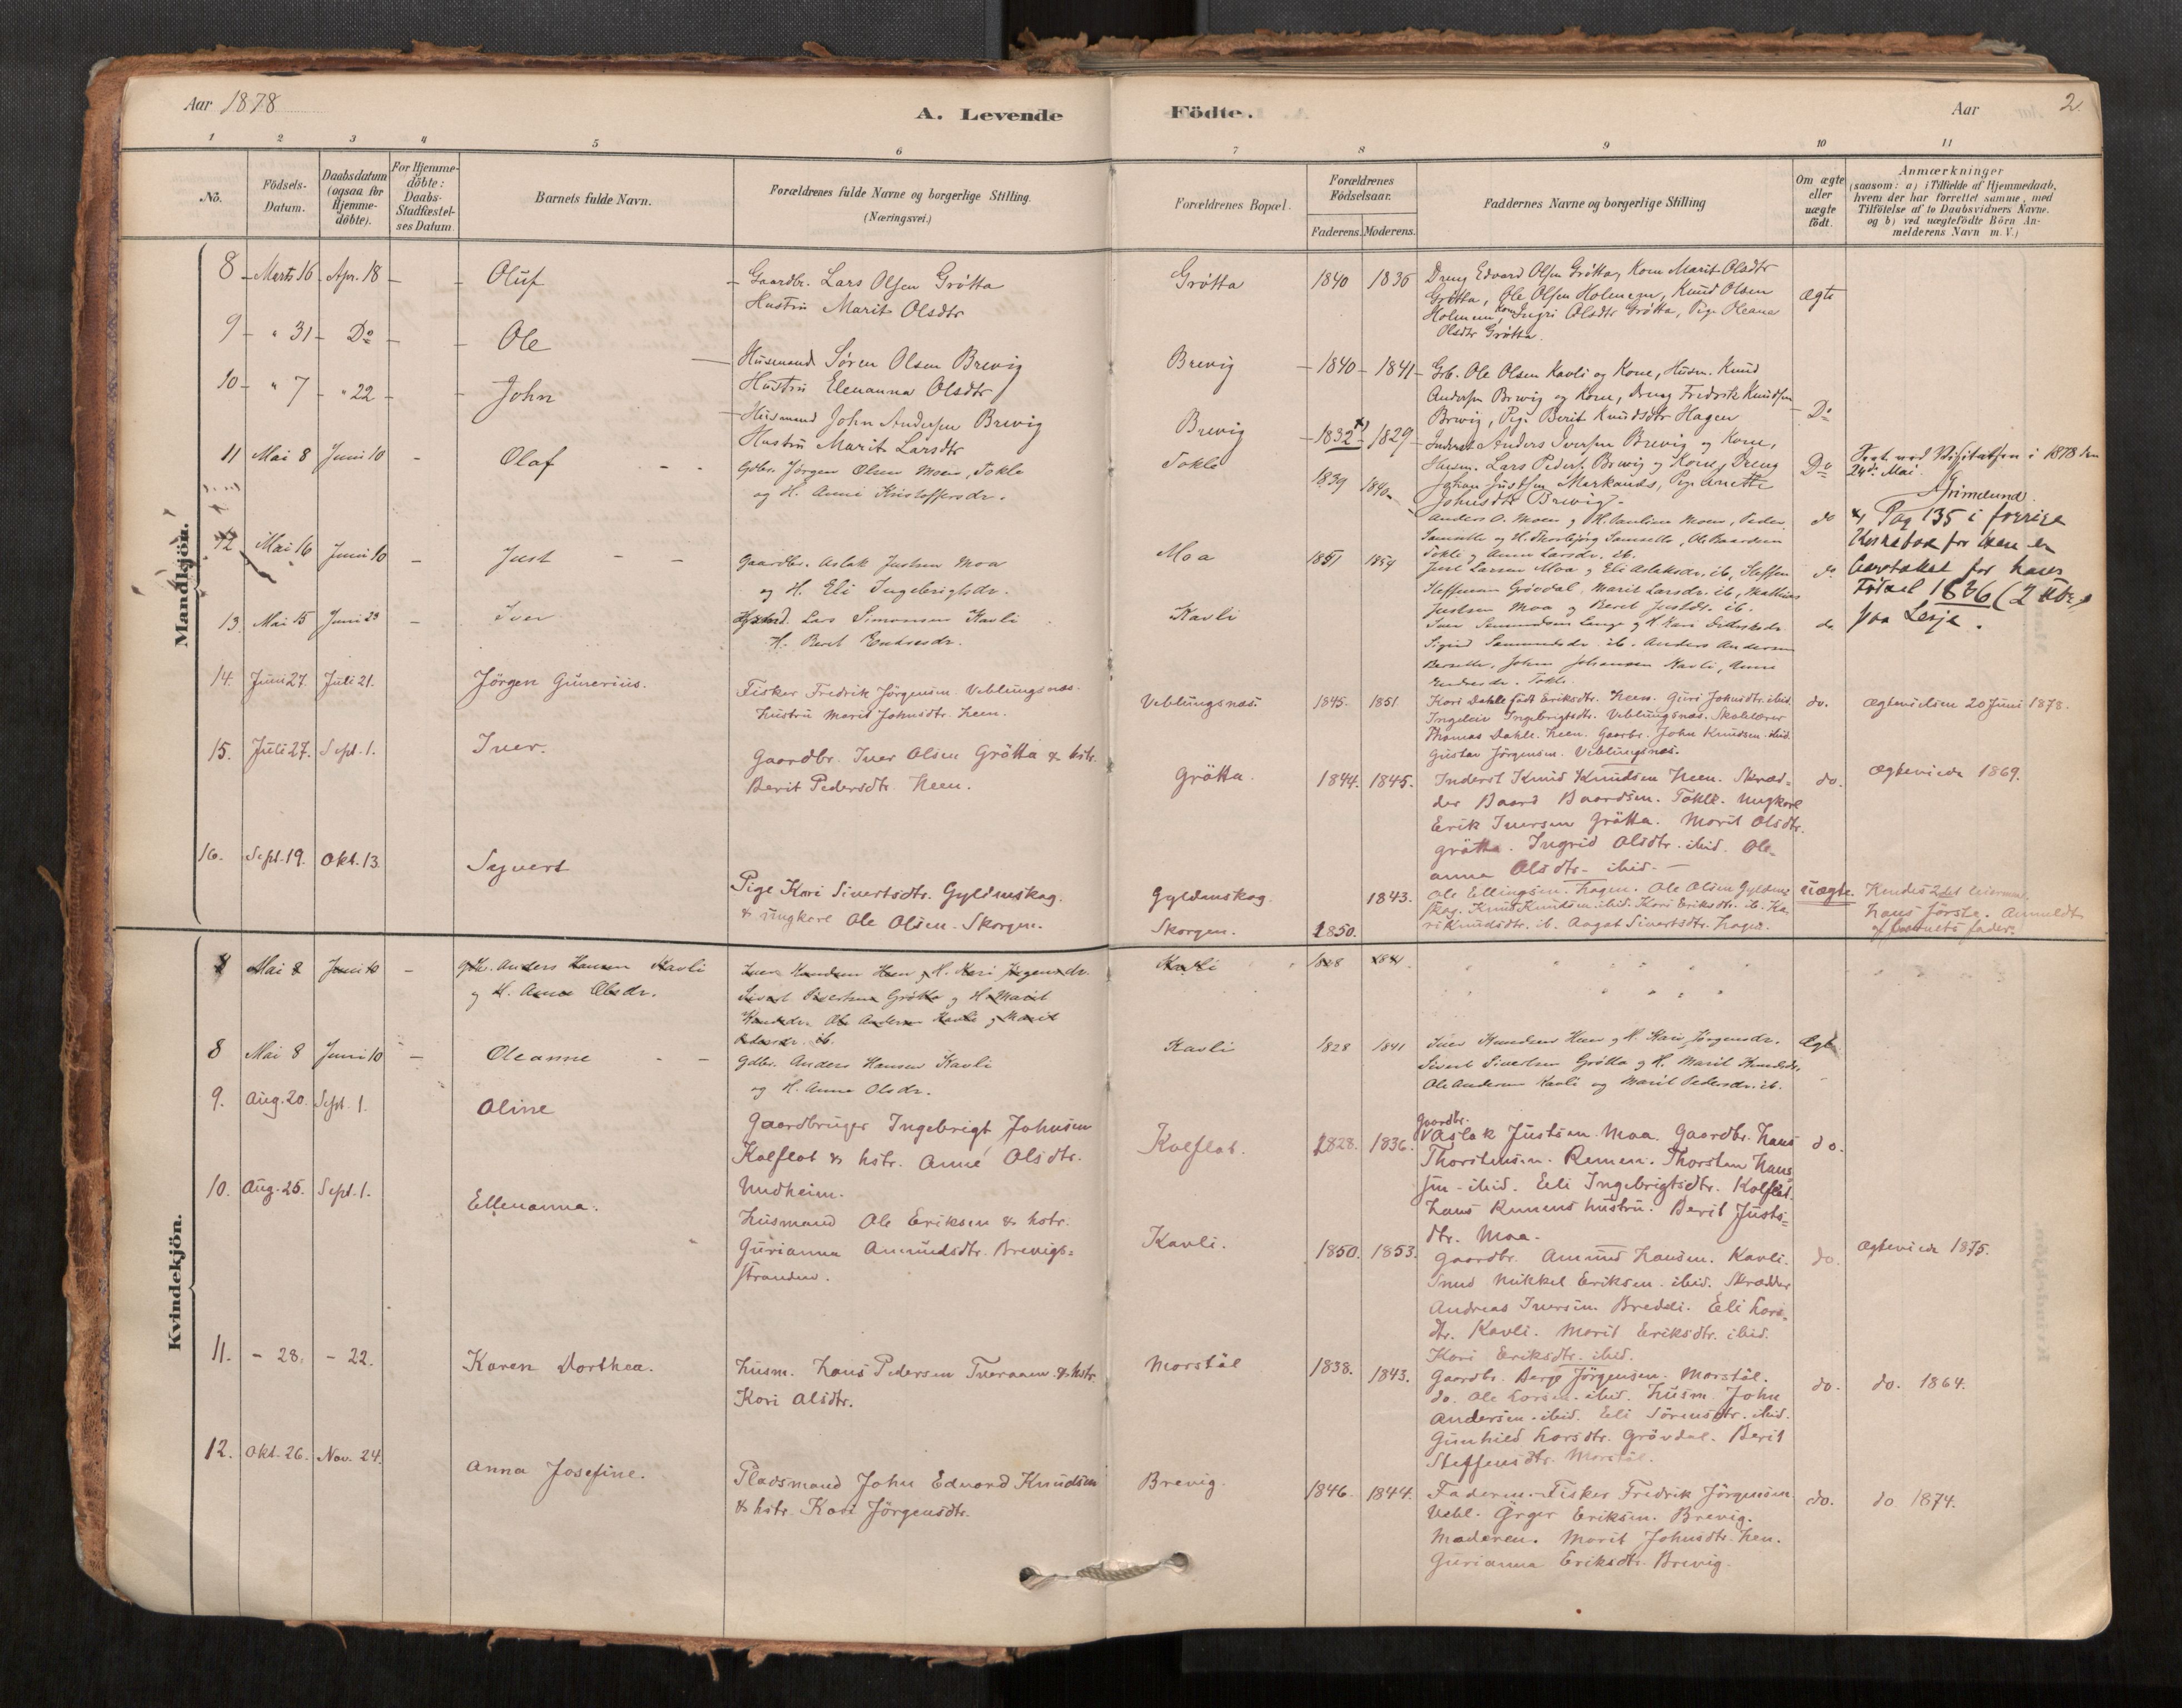 Aar 1878
A. Levende Födte.
Aar
2
1 2 3 4 5 6 7 8 9 10 11
No.
Födsels-Datum.
Daabsdatum (ogsaa for Hjemme-döbte).
For Hjemme-döbte: Daabs-Stadfæstel-ses Datum.
Barnets fulde Navn.
Forældrenes fulde Navne og borgerlige Stilling. (Næringsvei.)
Forældrenes Bopæl.
Forældrenes Födselsaar.
Faderens. Moderens.
Faddernes Navne og borgerlige Stilling
Om ægte eller uægte födt.
Anmærkninger
(saasom: a) i Tilfælde af Hjemmedaab,
hvem der har forrettet samme, med
Tilföielse af to Daabsvidners Navne,
og b) ved uægtefödte Börn An-
melderens Navn m. V.)
Mandkjön.
8 - Marts 16 - Apr. 18 - - Oluf - Gaardbr. Lars Olsen Grötta
Hustru Marit Olsdtr
Grötta 1840 1836
Dreng Edvard Olsen Grötta, Kone Marit Olsdtr
Grötta, Ole Olsen Holmem, Knud Olsen
Holmem, Kone Ingri Olsdtr Grötta, Pige Oleana
Olsdtr Grötta.
ægte
9 - " 31 - Do - - Ole - Husmand Sören Olsen Brevig
Hustru Elenanna Olsdtr
Brevig - 1840 - 1841 -
Grb. Ole Olsen Kavli og Kone, Husm. Knud
Andersen Brevig og Kone, Dreng Fredrik Knudsen
Brevig, Pige Berit Knudsdtr Hagen
Do
10 - " 7 - " 22 - - John - Husmand John Andersen Brevig
Hustru Marit Larsdtr
Brevig - 1832 x) - 1829 -
Inderst Anders Iversen Brevig og Kone,
Husm. Lars Peders. Brevig og Kone, Dreng
Johan Justsen Markands, Pige Anette
Johnsdtr Brevig -
Do
11 Mai 8 Juni 10 - Olaf - - Gdbr. Jörgen Olsen Moen, Tokle
og H. Anne Kristoffersdr.
Tokle 1839 1840
Anders O. Moen og H. Paulina Moen, Peder
Samsette og H. Thorbjörg Samsette, Ole Baardsen
Tokle og Anne Larsdr. ib.
do
Fort. ved Visitatsen i 1878 den
24de Mai.
Grimelund.
x) Pag 135 i forrige
Kirkebog for
for hans
Födsel 1836 (2 Okbr.)
paa Lesje.
12 Mai 16 Juni 10 - Just - - Gaardbr. Aslak Justsen Moa
og H. Eli Ingebrigtsdr.
Moa 1851 1854
Just Larsen Moa og Eli Aslaksdr. ib, Steffen
Steffensen Grövdal, Marit Larsdr. ib, Mathias
Justsen Moa og Beret Justsdr. ib.
do
13. Mai 15 Juni 23 - Iver Lars Simonsen Kavli
H. Beret Endresdr.
Kavli
Iver Sæmundsen Lange og H. Kari Didriksdr.
Sigrid Sæmundsdr. ib. Anders Andersen
Johan Johansen Kavli, Anne
Endresdr. Tokle.
do.
14. Juni 27. Juli 21. Jörgen Gunerius. Fisker Fredrik Jörgensen. Veblungsnæs.
Hustru Marit Johnsdtr. Heen.
Veblungsnæs. 1845. 1851.
Kari Dahle född Eriksdtr. Heen. Guri Johnsdtr. ibid.
Ingeleiv Ingebrigtsdtr. Veblungsnæs. Skolelærer
Thomas Dahle. Heen. Gaardbr. John Knudsen. ibid.
Gustav Jörgensen. Veblungsnæs.
do. Ægteviedes 20 Juni 1878.
15. Juli 27. Sept. 1. Iver. Gaardbr. Iver Olsen Grötta & hstr.
Berit Pedersdtr. Heen.
Grötta. 1844. 1845.
Inderst Knud Knudsen Heen. Skræd-
der Baard Baardsen. Tokle. Ungkarl
Erik Iversen Grötta. Marit Olsdtr.
Grötta. Ingrid Olsdtr. ibid. Ole-
anna Olsdtr. ibid. -
do. Ægteviede 1869.
16. Sept. 19. Okt. 13. Syvert Pige Kari Sivertsdtr. Gyldenskog.
& ungkarl Ole Olsen. Skorgen.
Gyldenskog. 1843.
Skorgen. 1850.
Ole Ellingsen. Hagen. Ole Olsen Gylden-
skog. Knud Knudsen. ibid. Kari Eriksdtr. ib. Ka-
ri Knudsdtr. ib. Aagot Sivertsdtr. Hagen.
uægte. Hendes 2det leiermaal,
hans förste. Anmeldt
af barnets fader.
Kvindekjön.
8 Mai 8 Juni 10 - Gdbr. Anders Hansen Kavli
og H. Anne Olsdr.
Iver Knudsen Heen og H. Kari Jörgensdr.
Sivert Sivertsen Grötta og H. Marit
Knudsdr. Ole Andersen Kavli og Marit
Pedersdr. ib.
Kavli 1828 1841
8 Mai 8 Juni 10 - Oleanne - - Gdbr. Anders Hansen Kavli
og H. Anne Olsdr.
Kavli 1828 1841
Iver Knudsen Heen og H. Kari Jörgensdr.
Sivert Sivertsen Grötta og H. Marit Knudsdr,
Ole Andersen Kavli og Marit Pedersdr. ib.
Ægte
9. Aug. 20. Sept. 1. Oline Gaardbruger Ingebrigt Johnsen
Kolflot & hstr. Anne Olsdtr.
Undheim.
Kolflot. 1828. 1836.
Gaardbr. Aslak Justsen. Moa. Gaardbr. Hans
Thorstensen. Remem. Thorsten Han-
sen - ibid. Eli Ingebrigtsdtr. Kolflot.
Hans Remems hustru. Berit Justs-
dtr. Moa.
do.
10. Aug. 25. Sept. 1. Ellenanna. Husmand Ole Eriksen & hstr.
Gurianna Amundsdtr. Brevigs-
stranden.
Kavli. 1850. 1853.
Gaardbr. Amund Hansen. Kavli.
Smed Mikkel Eriksen. ibid. Skrædder
Andreas Iversen Breddi. Eli Lars-
dtr. Kavli. Marit Eriksdtr. ibid.
Kari Eriksdtr. ibid.
do. Ægteviede 1875.
11. - 28. - 22. Karen Dorthea. Husm. Hans Pedersen Tveraaen & hstr.
Kari Olsdtr.
Morstöl 1838. 1843.
Gaardbr. Berge Jörgensen. Morstöl.
do. Ole Larsen. ibid. Husm. John
Andersen. ibid. Eli Sörensdtr. ibid.
Gunhild Larsdtr. Grövdal. Berit
Steffensdtr. Morstöl.
do. do. 1864.
12. Okt. 26. Nov. 24. Anna Josefine. Pladsmand John Edvard Knudsen
& hstr. Kari Jörgensdtr.
Brevig. 1846. 1844.
Faderen. Fisker Fredrik Jörgensen
Vebl. Örger Eriksen. Brevig.
Moderen. Marit Johnsdtr. Hen.
Gurianna Eriksdtr. Brevig.
do. do 1874.